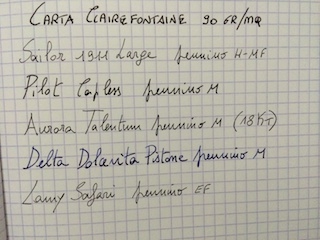 CARTA CLAIREFONTAINE 90 GR/MQ
Sailor 1911 Large pennino H-MF
Pilot Capless pennino M
Aurora Talentum pennino M (18KT)
Delta Dolcevita Pistone pennino M
Lamy Safari pennino EF